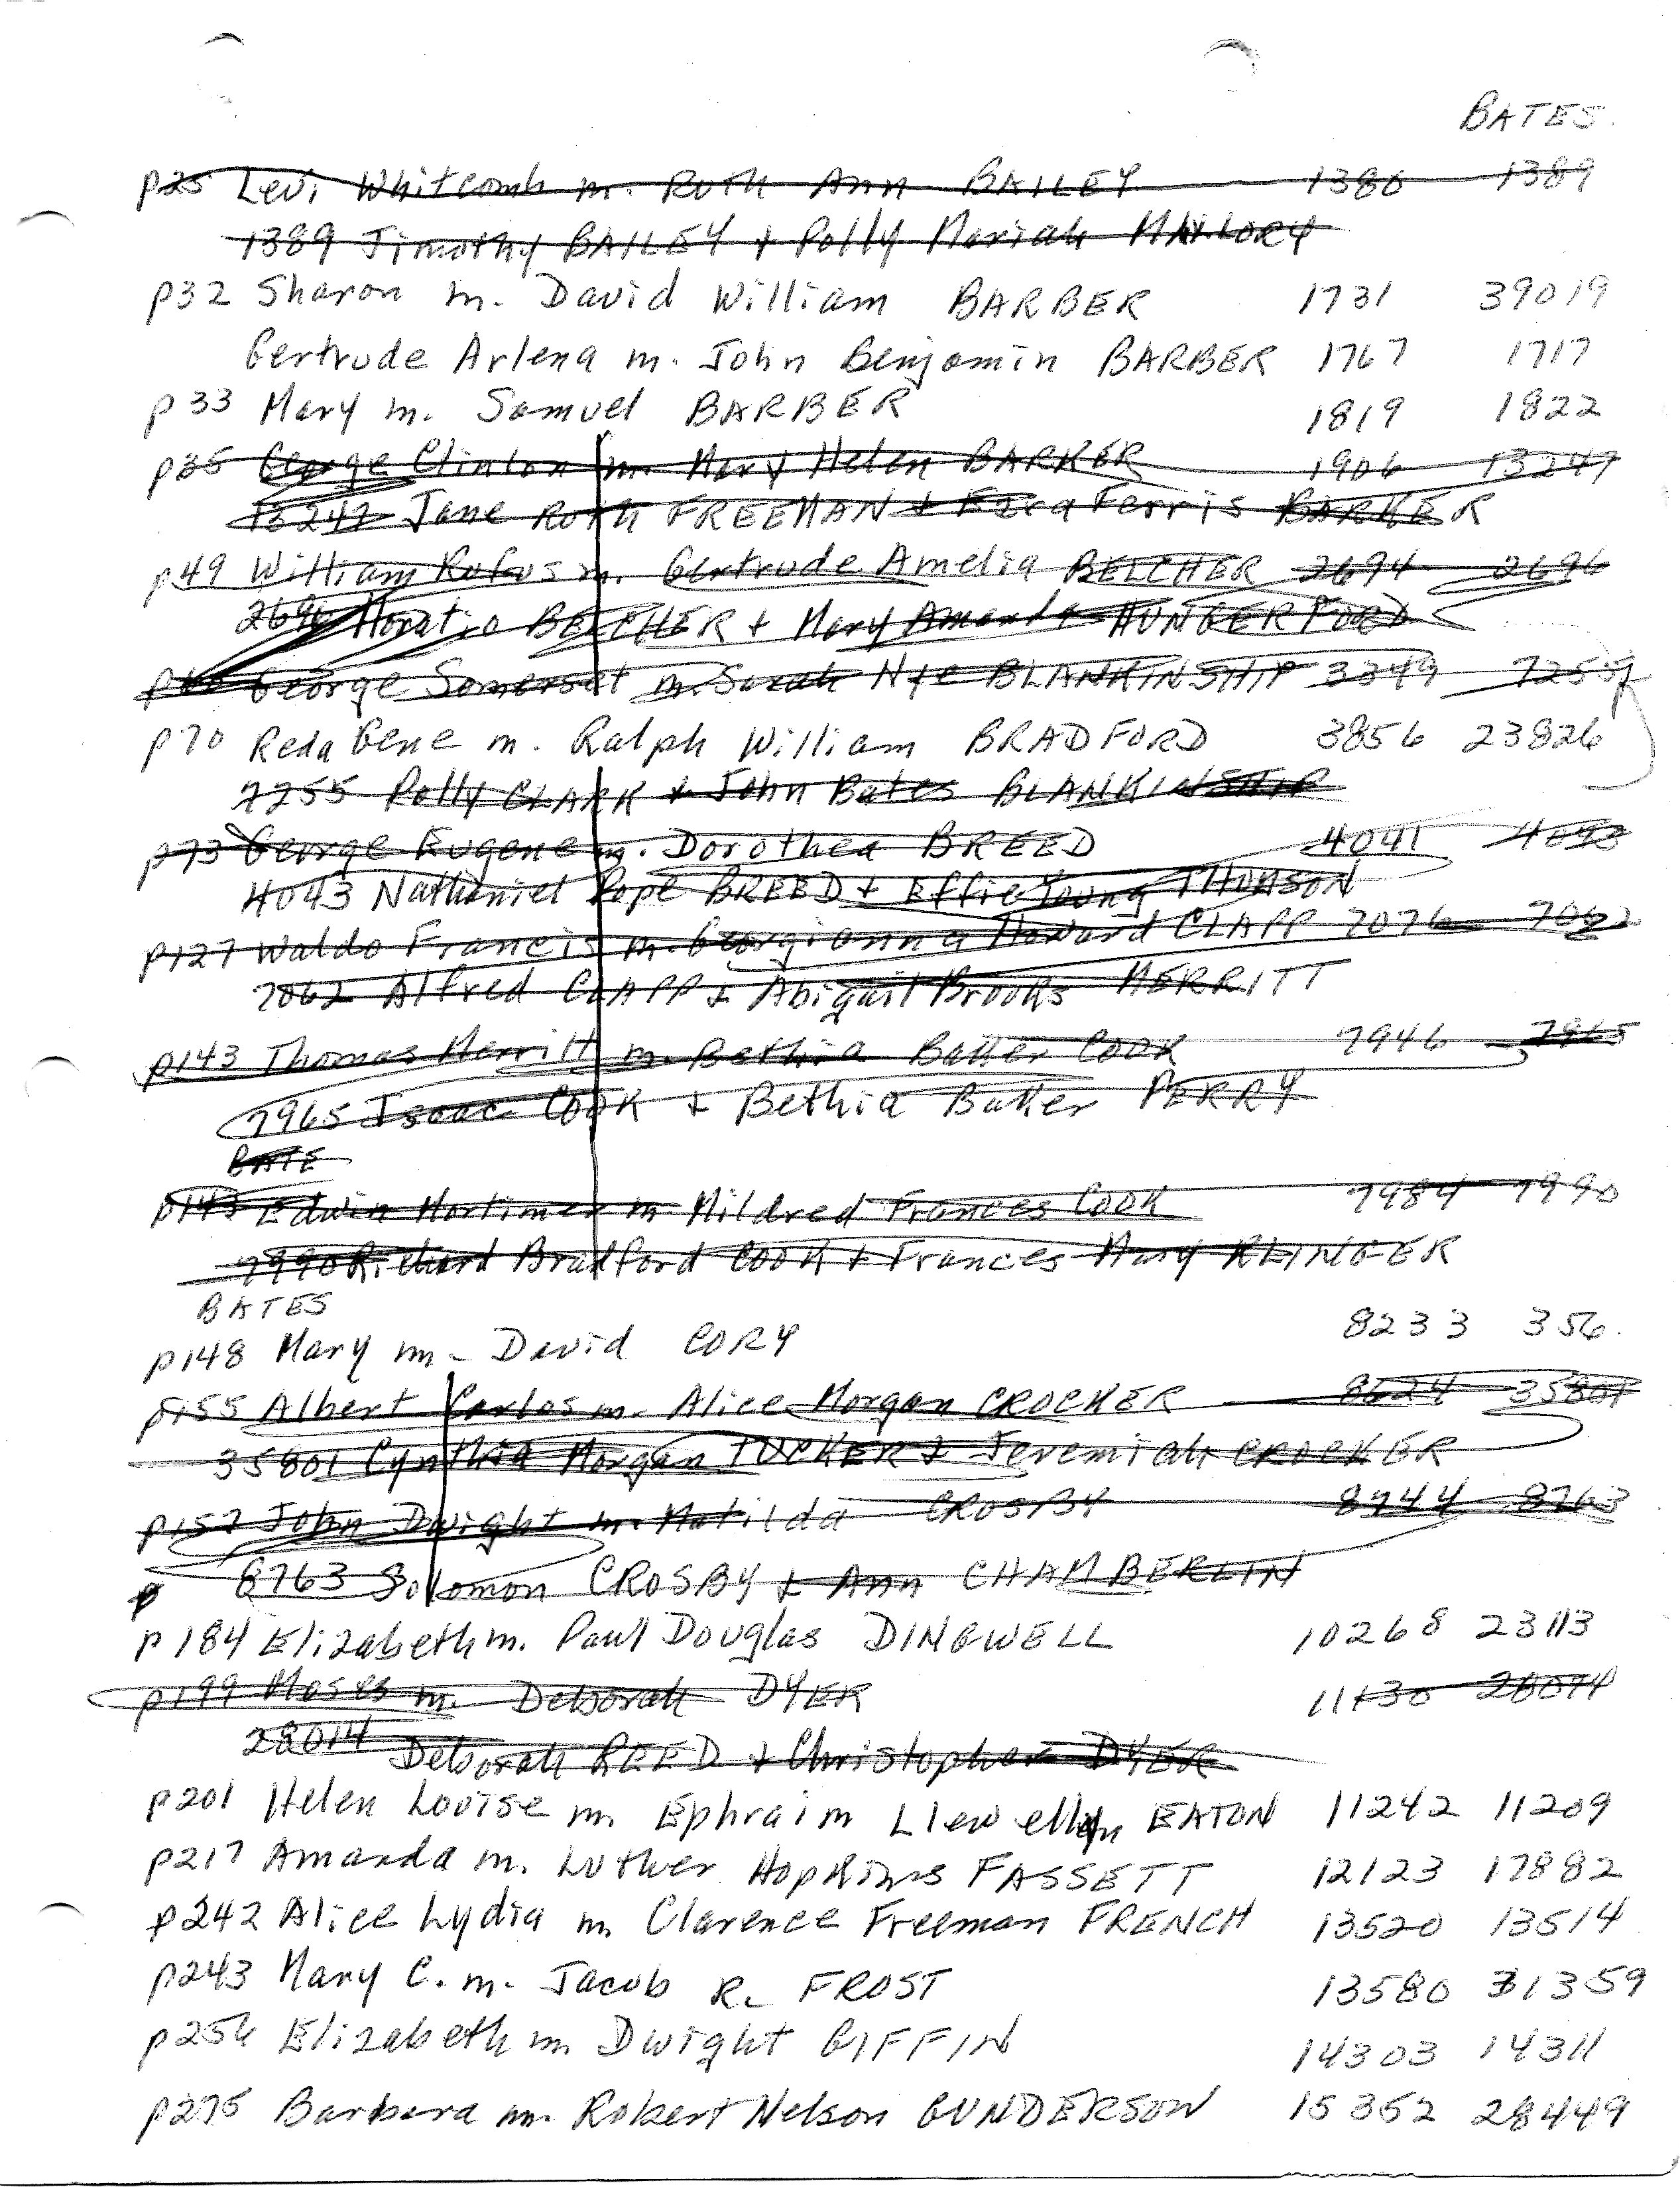 BATES.
p25 Levi Whitcomb m. Ruth Ann BAILEY 1380 1389
1389 Timothy BAILEY + Polly Mariah MALLORY
p32 Sharon m. David William BARBER 1731 39019
Gertrude Arlena m. John Benjamin BARBER 1767 1717
p33 Mary m. Samuel BARBER 1819 1822
p35 George Clinton m. Mary Helen BARKER 1906 13247
13247 Jane Ruth FREEMAN + Ezra Ferris BARKER
p49 William Rufus m. Gertrude Amelia BELCHER 2694 2696
2696 Horatio BELCHER + Mary Amanda HUNGERFORD
George Somerset m. Sarah Nye BLANKINSHIP 3349 7255
p70 Reda Gene m. Ralph William BRADFORD 3856 23826
7255 Polly CLARK + John Bates BLANKINSHIP
p73 George Eugene m. Dorothea BREED 4041 4043
4043 Nathaniel Pope BREED + Effie Young THOMSON
p127 Waldo Francis m. Georgianna Howard CLAPP 7076 7062
7062 Alfred CLAPP + Abigail Brooks MERRITT
p143 Thomas Merritt m. Bethia Baker COOK 7946 7965
7965 Isaac COOK + Bethia Baker PERRY
BATE
p143 Edwin Mortimer m Mildred Frances COOK 7984 7990
7990 Richard Bradford COOK + Frances Mary KLINGER
BATES
p148 Mary m. David CORY 8233 356.
p155 Albert Carlos m. Alice Morgan CROCKER 8624 35801
35801 Cynthia Morgan TUCKER + Jeremiah CROCKER
p157 John Dwight m. Matilda CROSBY 8744 8763
p 8763 Solomon CROSBY + Ann CHAMBERLIN
p184 Elizabeth m. Paul Douglas DINGWELL 10268 23113
p199 Moses m. Deborah DYER 11130 28014
28014 Deborah REED + Christopher DYER
p201 Helen Louise m. Ephraim Llewellyn EATON 11242 11209
p217 Amanda m. Luther Hopkins FASSETT 12123 17882
p242 Alice Lydia m. Clarence Freeman FRENCH 13520 13514
p243 Mary C. m. Jacob R. FROST 13580 31359
p256 Elizabeth m. Dwight GIFFIN 14303 14311
p275 Barbara m. Robert Nelson GUNDERSON 15352 28449